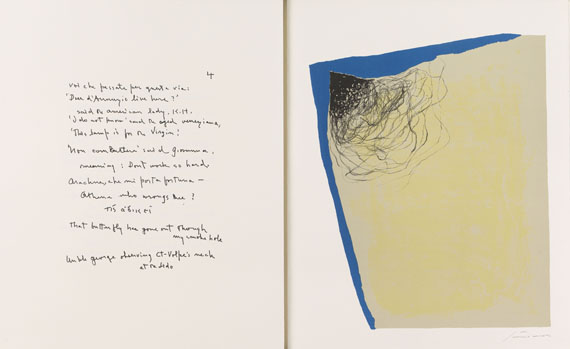 4
voi che passate per questa via:
'Does d'Annunzio live here?'
said the american lady, K.H.
'I do not know' said the aged veneziana,
'This lamp is for the Virgin.'
'Non combattere' said Giovanna,
meaning: Dont work so hard
Arachne, che mi porta fortuna —
Athena who wrongs thee?
τίς ἀδικεῖ
That butterfly has gone out through
my smoke hole
Unkle George observing Ct-Volpe's neck
at the Lido